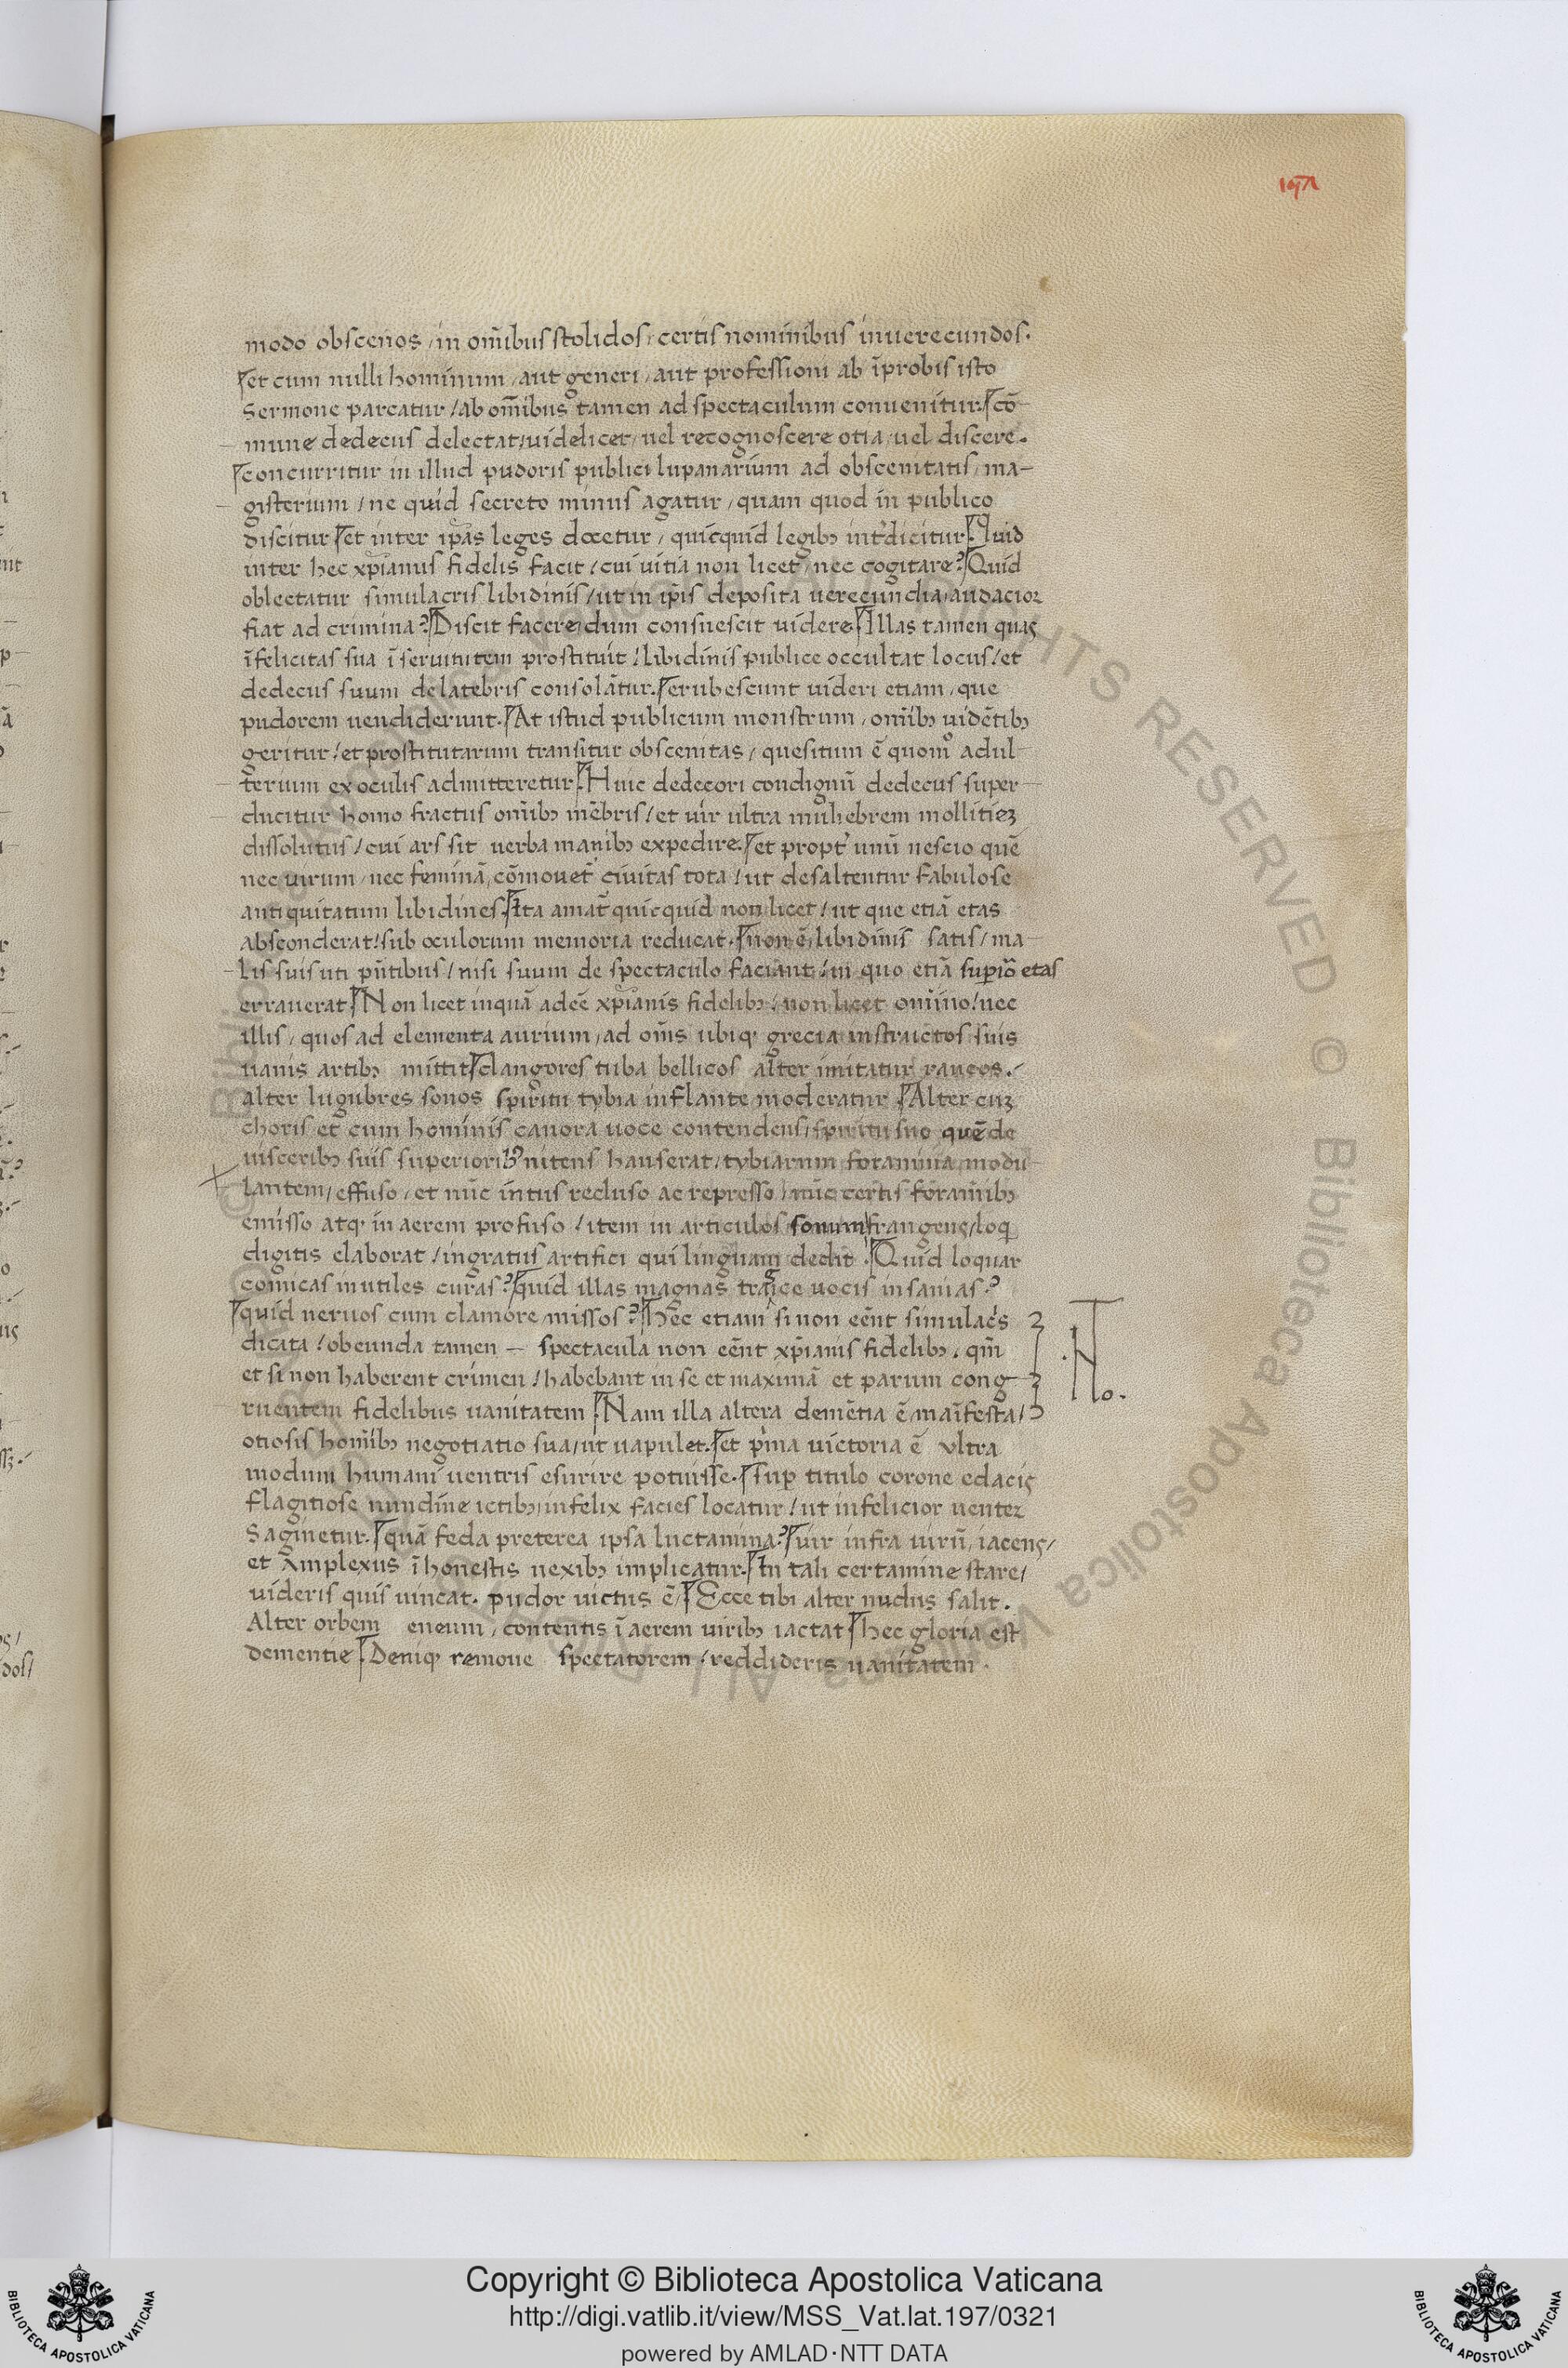 197
modo obscenos / in om̄ibus stolidos / certis nominibus inuerecundos.
et cum nulli hominum / aut generi / aut professioni ab īprobis isto
Sermone parcatur / ab om̄ibus tamen ad spectaculum conuenitur. cō-
mune dedecus delectat / uidelicet / uel recognoscere otia / uel discere.
concurritur in illud pudoris publici lupanarium ad obscenitatis / ma-
gisterium / ne quid secreto minus agatur / quam quod in publico
discitur. et inter ip̄as leges docetur / quicquid legibꝫ int̓dicitur. Quid
inter hec xp̄ianus fidelis facit / cui uitia non licet / nec cogitare? Quid
oblectatur simulacris libidinis / ut in ip̄is deposita uerecundia / audacior
fiat ad crimina? Discit facere / dum consuescit uidere. Illas tamen quas
īfelicitas sua ī seruitutem prostituit / libidinis publice occultat locus / et
dedecus suum de latebris consolātur. erubescunt uideri etiam / que
pudorem uendiderunt. At istud publicum monstrum / om̄ibꝫ uidētibꝫ
geritur / et prostitutarum transitur obscenitas / quesitum ē quomº adul-
terium ex oculis admitteretur. Huic dedecori condignū dedecus super-
ducitur homo fractus om̄ibꝫ mēbris / et uir ultra muliebrem mollitieꝫ
dissolutus / cui ars sit uerba manibꝫ expedire. et propt̓ unū nescio quē
nec uirum / nec feminā / cōmouet̄ ciuitas tota / ut desaltentur fabulose
antiquitatum libidines. Ita amat̄ quicquid non licet / ut que etiā etas
absconderat / sub oculorum memoria reducat. non ē libidinis satis / ma-
lis suis uti p̄ntibus / nisi suum de spectaculo faciant / in quo etiā supiõ etas
errauerat. Non licet inquā adeē xp̄ianis fidelibꝫ / non licet om̄ino / nec
illis / quos ad elementa aurium / ad om̄s ubiqꝫ grecia instructos suis
uanis artibꝫ mittit. clangores tuba bellicos alter imitatur raucos.
alter lugubres sonos spiritu tybia inflante moderatur. Alter cuꝫ
choris et cum hominis canora uoce contendens / spiritu suo quē de
uisceribꝫ suis superioribꝫ nitens hauserat / tybiarum foramina modu-
lantem / effuso / et nūc intus recluso ac represso / nūc certis foram̄ibꝫ
emisso atqꝫ in aerem profuso / item in articulos sonum frangens / loq̄
digitis elaborat / ingratus artifici qui linguam dedit. Quid loquar
comicas inutiles curas? quid illas magnas tragice uocis insanias?
quid neruos cum clamore missos? hec etiam si non eēnt simulac̓s
dicata / obeunda tamen — spectacula non eēnt xp̄ianis fidelibꝫ. qm̄
et si non haberent crimen / habebant in se et maximā et parum cong-
ruentem fidelibus uanitatem. Nam illa altera demētia ē maīfesta /
No.
otiosis hom̄ibꝫ negotiatio sua / ut uapulet. et p̓ma uictoria ē vltra
modum humani uentris esurire potuisse. sup titulo corone edacis
flagitiose nundine ictibꝫ / infelix facies locatur / ut infelicior uenter
Saginetur. quā feda preterea ipsa luctamina? uir infra uirū / iacens /
et āmplexus īhonestis nexibꝫ implicatur. In tali certamine stare /
uideris quis uincat. pudor uictus ē / Ecce tibi alter nudus salit.
Alter orbem eneum / contentis ī aerem uiribꝫ iactat. hec gloria est
dementie. Deniqꝫ remoue spectatorem / reddideris uanitatem.
Copyright © Biblioteca Apostolica Vaticana
http://digi.vatlib.it/view/MSS_Vat.lat.197/0321
powered by AMLAD·NTT DATA